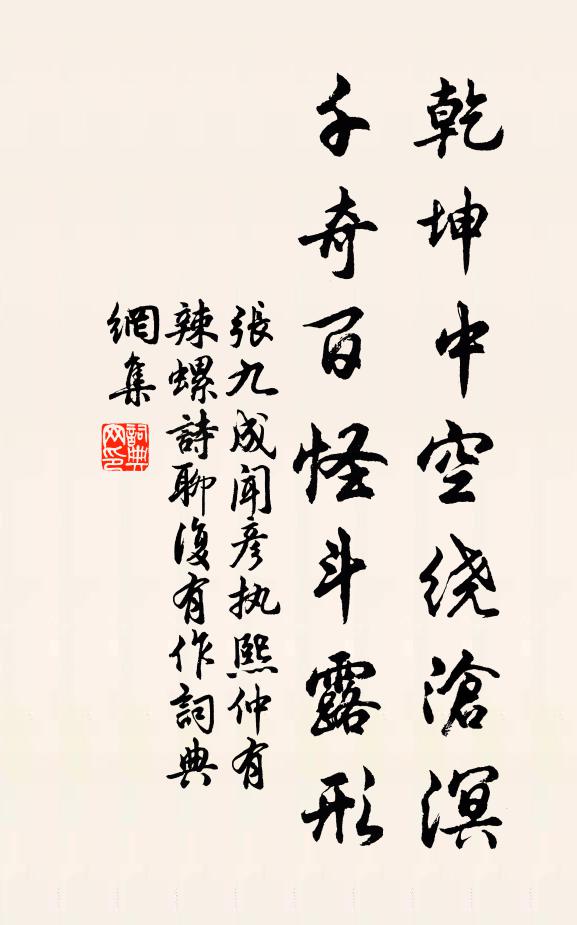 乾坤中空绕滄溟
千奇百怪斗露形
張九成闻彦执熙仲有
辣螺詩聊復有作詞典
網集
詞典网印